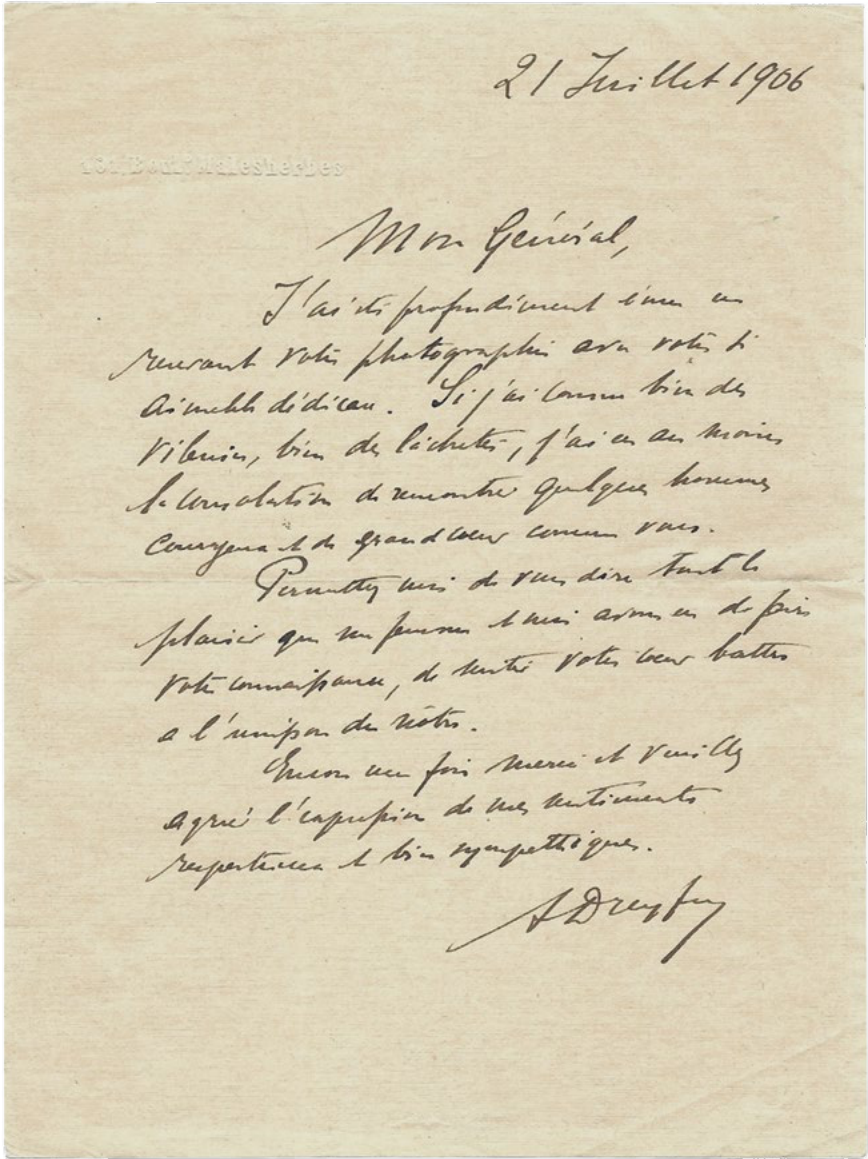 21 Juillet 1906
131 Boul. Malesherbes
Mon Général,
J'ai été profondément ému en
recevant votre photographie avec votre si
aimable dédicace. Si j'ai connu bien des
vilenies, bien des lâchetés, j'ai eu au moins
la consolation de rencontrer quelques hommes
courageux et de grand cœur comme vous.
Permettez moi de vous dire tout le
plaisir que ma femme et moi avons eu de faire
votre connaissance, de sentir votre cœur battre
a l'unisson du nôtre.
Encore une fois merci et veuillez
agréer l'expression de mes sentiments
respectueux et bien sympathiques.
A Dreyfus